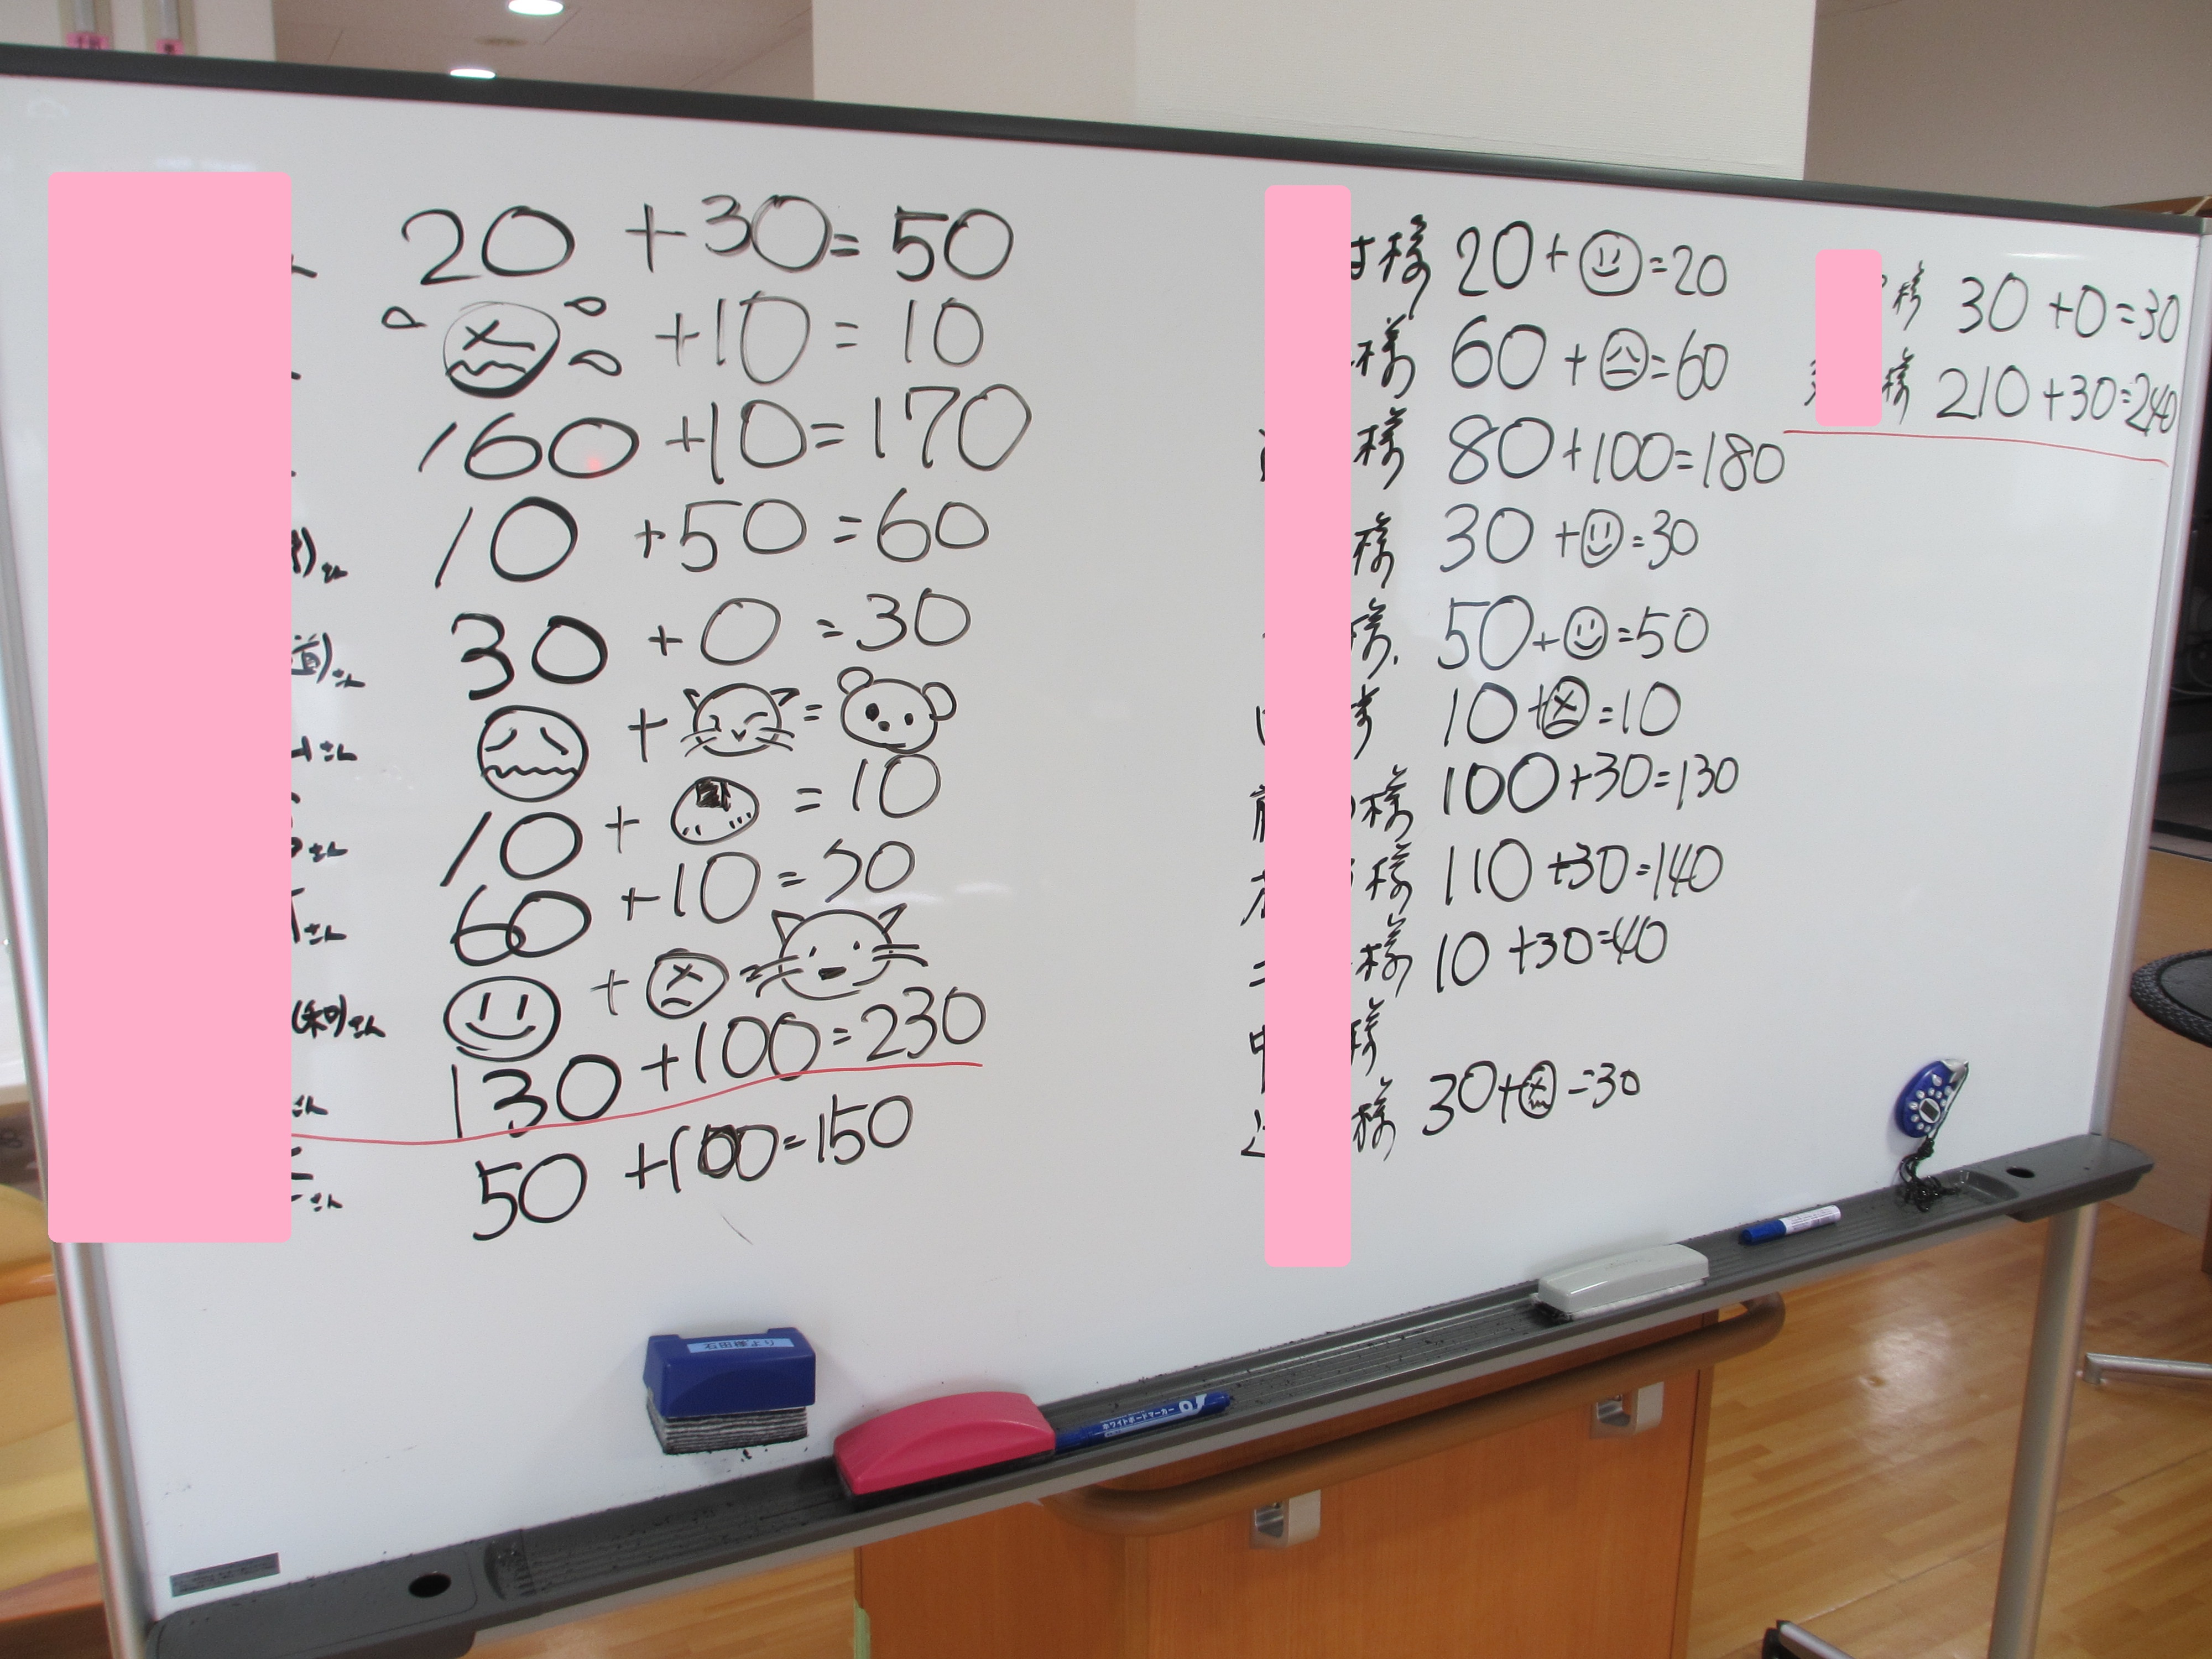 20 + 30 = 50
+10 = 10
160 +10 = 170
10 +50 = 60
30 + 0 = 30
道)さん
+ =
さん
10 + = 10
さん
60 +10 =
さん
+ =
(和)さん
130 +100 = 230
さん
50 +100 = 150
さん
村様 20 + = 20
様 60 + = 60
様 80 +100 = 180
様 30 + = 30
様 50 + = 50
10 + = 10
様 100 +30 = 130
様 110 +30 = 140
様 10 +30 = 40
様
様 30 + = 30
様 30 +0 = 30
様 210 +30 = 240
石田様より
ホワイトボードマーカー